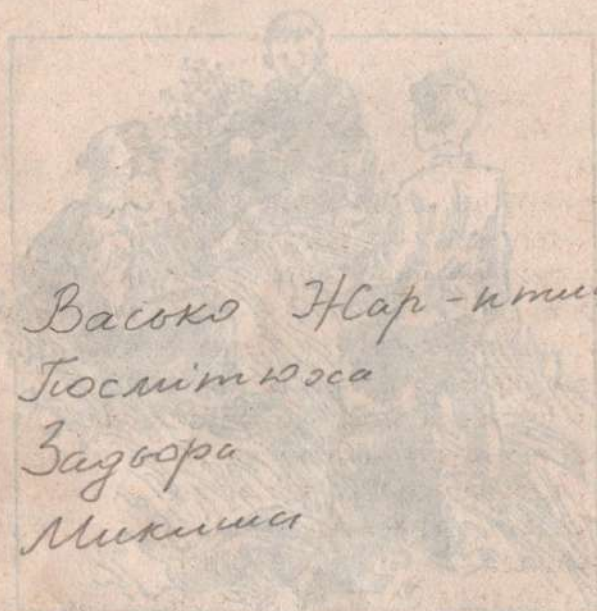 Васько Жар-пти
Посмітюха
Задьора